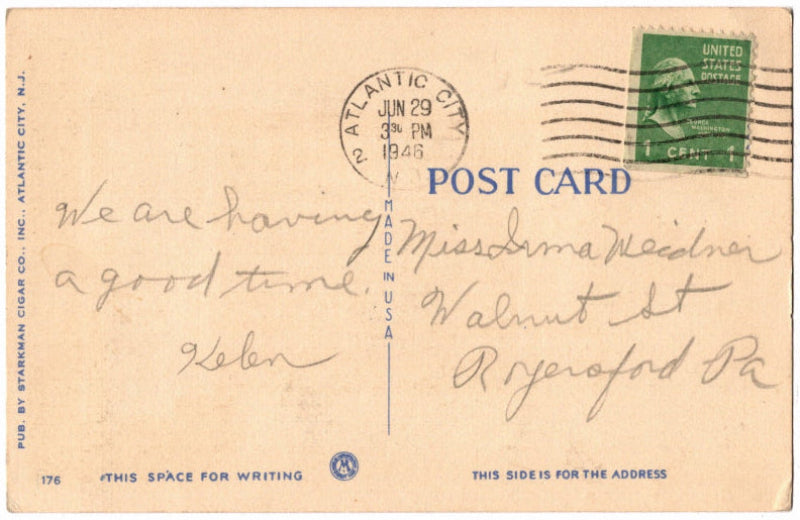 PUB. BY STARKMAN CIGAR CO., INC., ATLANTIC CITY, N.J.
ATLANTIC CITY
JUN 29
3 30 PM
1946
2
N
UNITED
STATES
POSTAGE
GEORGE
WASHINGTON
1 CENT 1
POST CARD
MADE IN USA
We are having
a good time.
Helen
Miss Irma Weidner
Walnut St
Royersford Pa
176
THIS SPACE FOR WRITING
THIS SIDE IS FOR THE ADDRESS